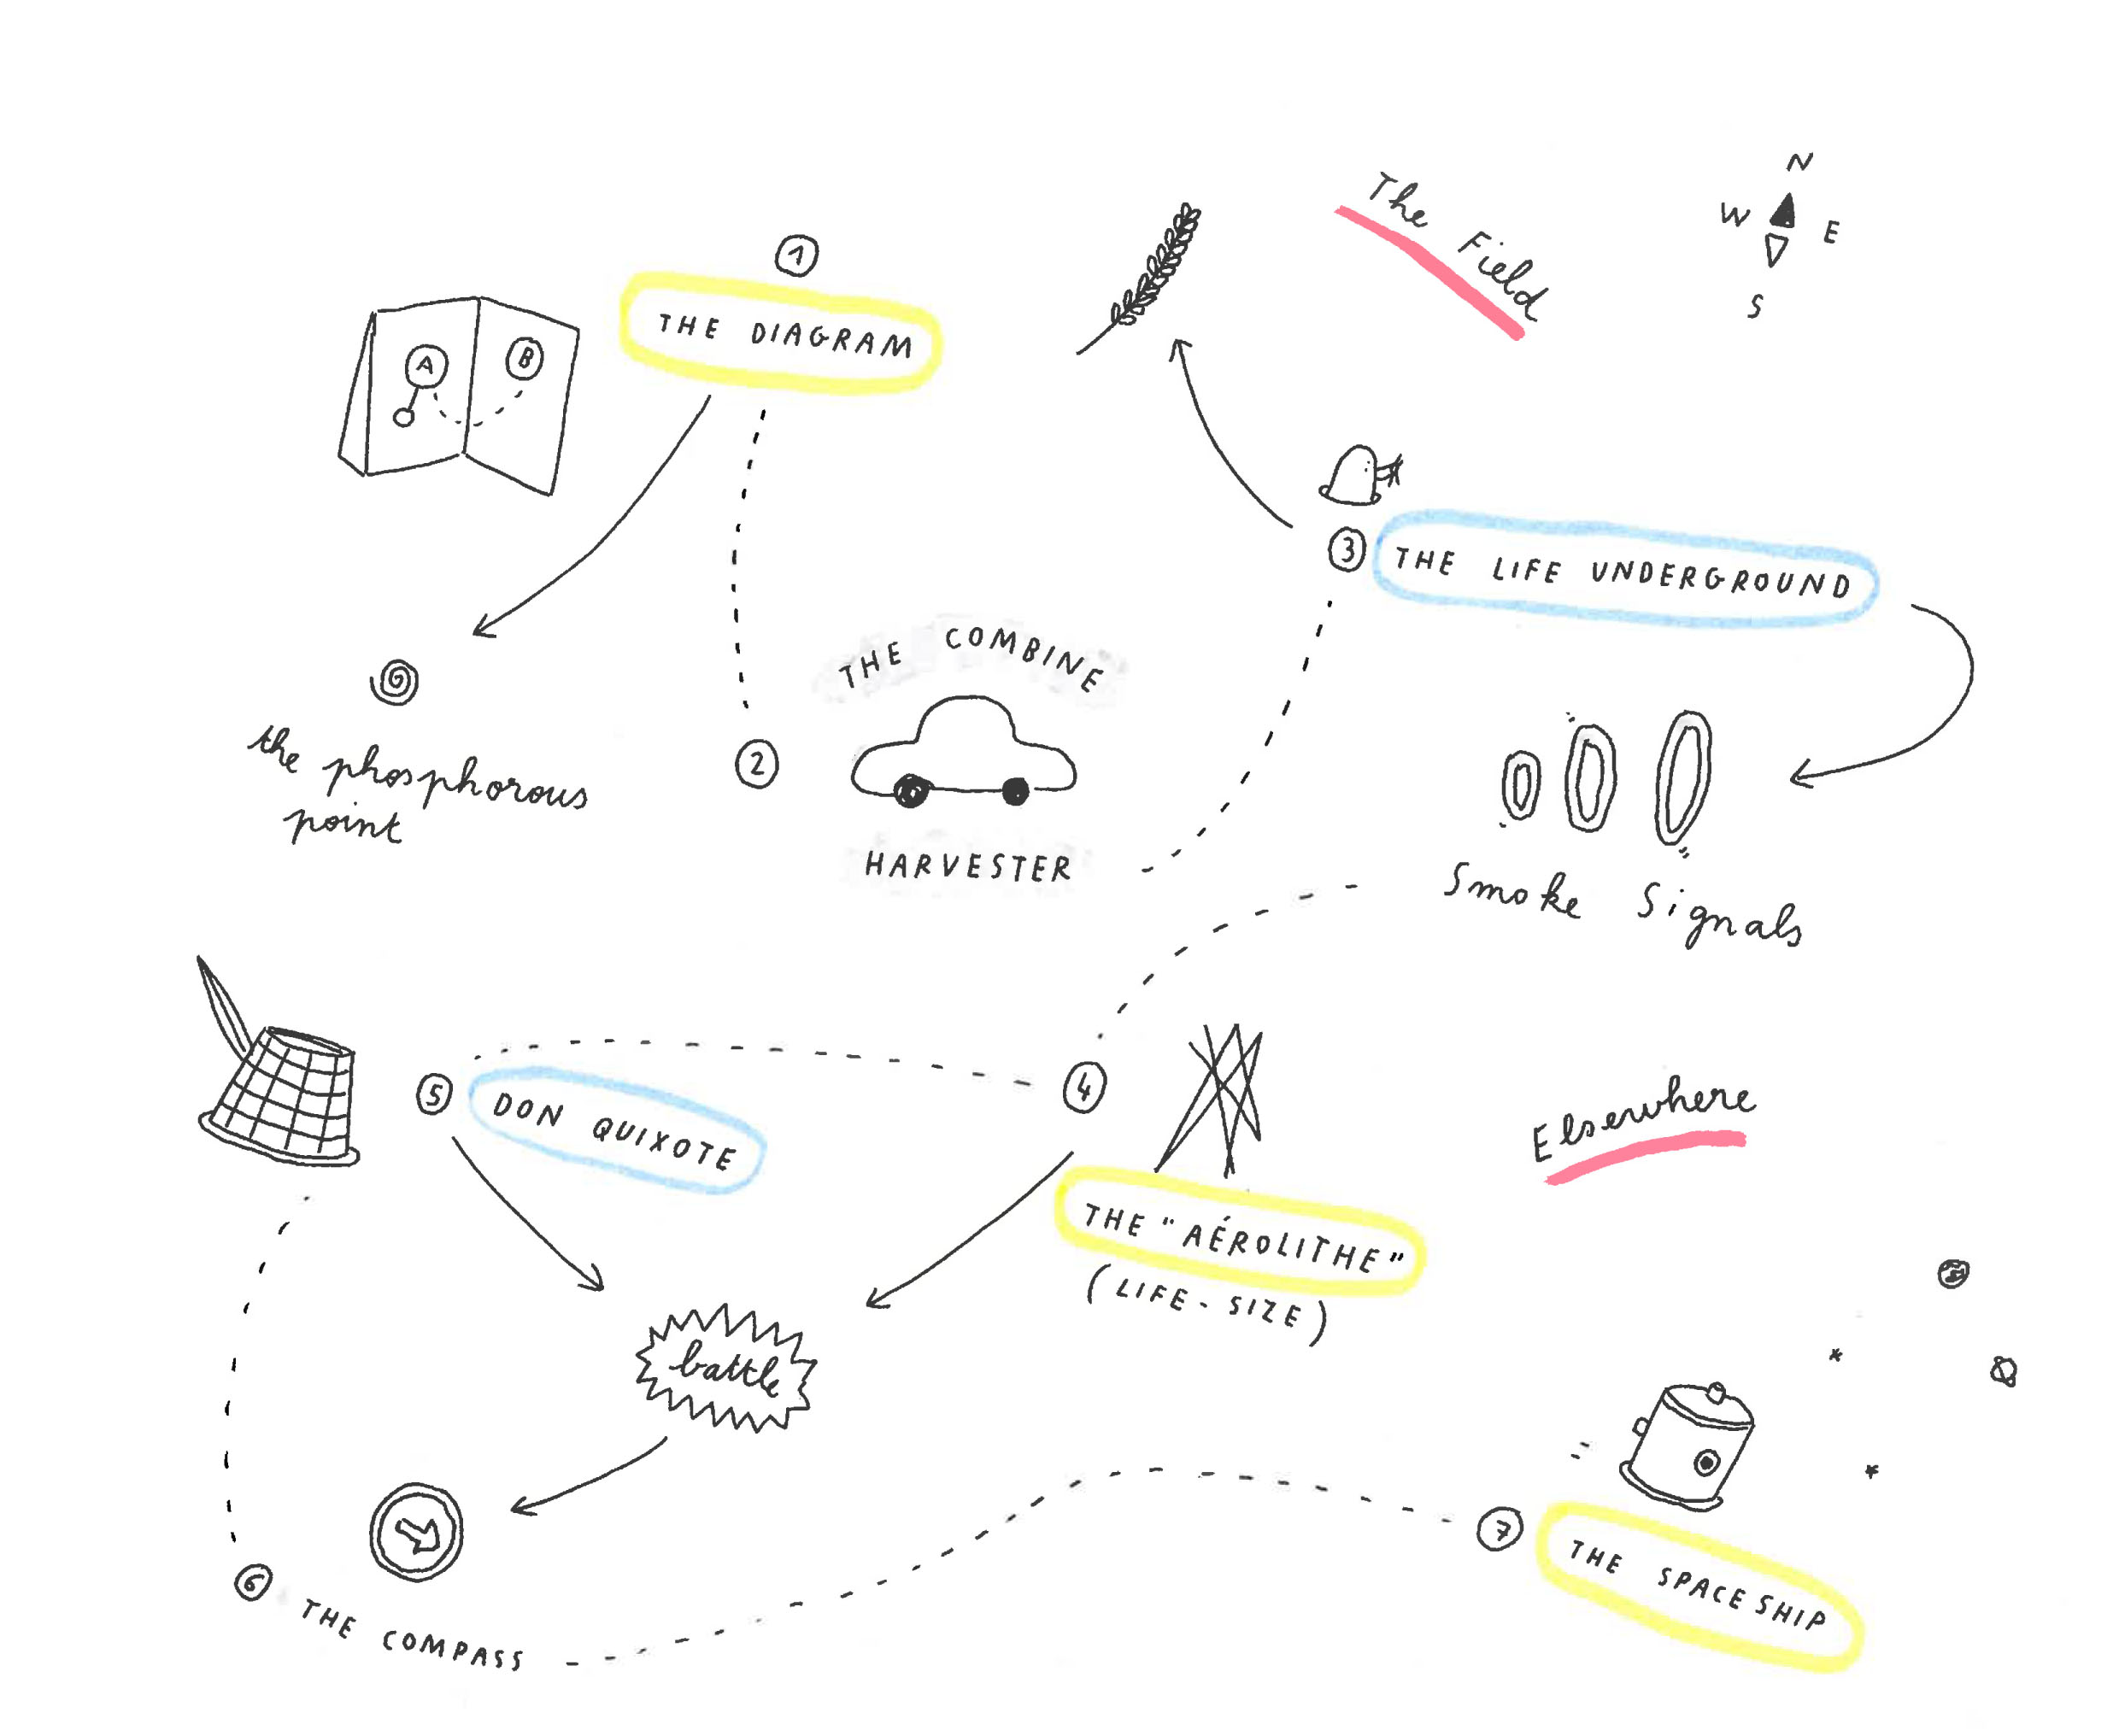 N
W E
S
The Field
1
THE DIAGRAM
A B
3
THE LIFE UNDERGROUND
the phosphorous
point
2
THE COMBINE
HARVESTER
Smoke Signals
5
DON QUIXOTE
4
THE "AÉROLITHE"
(LIFE-SIZE)
Elsewhere
battle
6
THE COMPASS
7
THE SPACESHIP